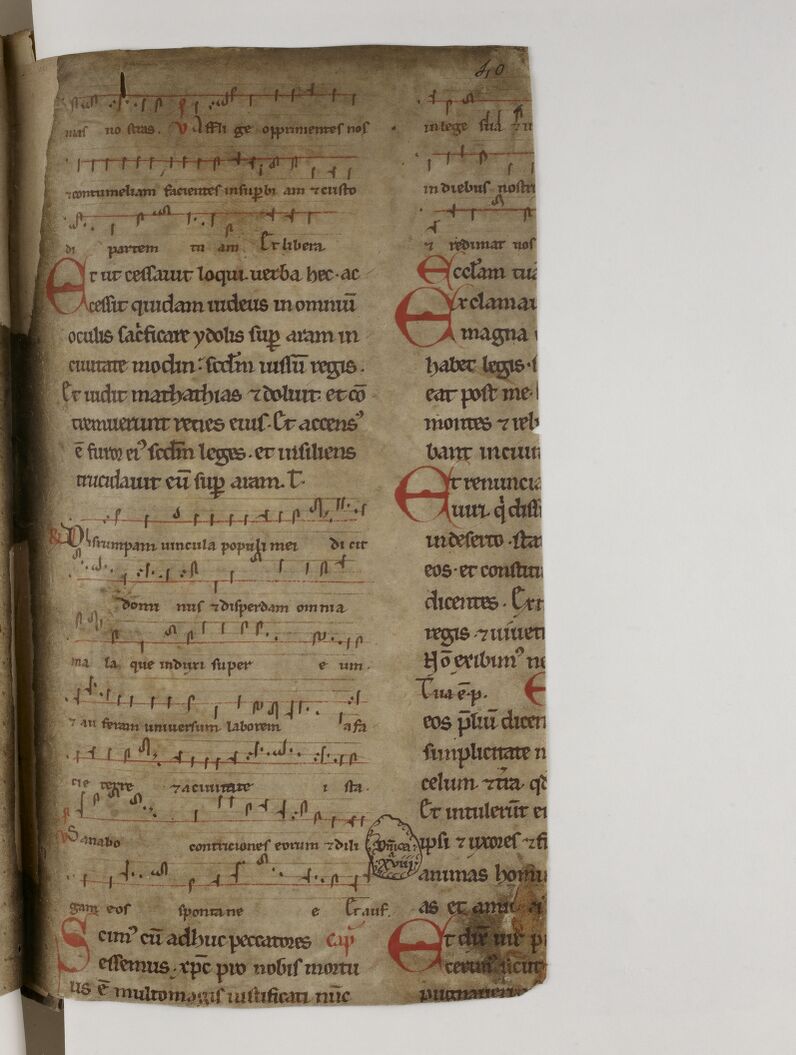 40
nas no stras. V Affli ge opprimentes nos
⁊contumeliam facientes insuꝑbi am ⁊custo
di partem tu am Et libera
Et ut cessauit loqui uerba hec· ac
cessit quidam iudeus in omniū
oculis sac̓ficare ydolis suꝑ aram in
ciuitate modin: scđm iussū regis.
Et uidit mathathias ⁊ doluit· et cō
tremuerunt renes eius· Et accensꝰ
ē furor eiꝰ scđm leges· et insiliens
trucidauit eū suꝑ aram. T.
R Disrumpam uincula populi mei di cit
domi nus ⁊ disperdam omnia
ma la que induxi super e um·
⁊ au feram uniuersum laborem a fa
cie terre ⁊ a ciuitate i sta·
V Sanabo contriciones eorum ⁊ dili
gam eos sponta ne e Et auf.
Scimꝰ cū adhuc peccatores cap̄
essemus· xp̄c pro nobis mortu
us ē multomagis iustificati nūc
in lege suā ⁊ in
in diebus nostri
⁊ redimat nos
Eccl̄am tuā
Exclamau
magna
habet legis·
eat post me·
montes ⁊ rel
bant in ciuit
Et renuncia
uiri q̇ dissi
in deserto·
eos· et constitu
dicentes·
regis ⁊ uiuet
Nō exibimꝰ ne
Tua ē p.
eos p̄liū dicen
simplicitate n
celum ⁊ tr̄a qđ
Et intulerūt ei
Dn̄ica
xviii
ipsi ⁊ uxores ⁊ fi
animas homi
as et
Et
certus sicut
pugnauer